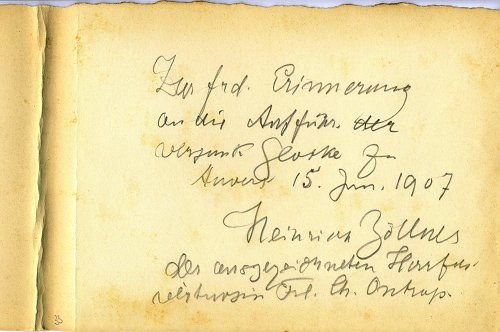 Zur frd. Erinnerung
an die Aufführ. der
versunk. Glocke zu
Anvers 15. Jan. 1907
Heinrich Zöllner
der ausgezeichneten Harfen-
Frl.
33